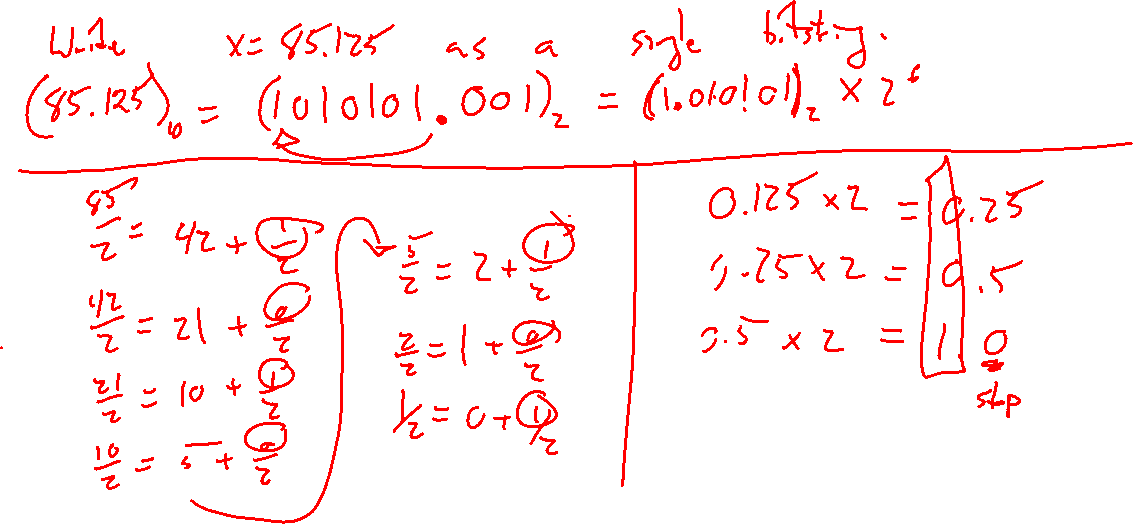 Write x = 85.125 as a single bitstring.
(85.125)₁₀ = (1010101.001)₂ = (1.010101)₂ × 2⁶
85/2 = 42 + 1/2
42/2 = 21 + 0/2
21/2 = 10 + 1/2
10/2 = 5 + 0/2
5/2 = 2 + 1/2
2/2 = 1 + 0/2
1/2 = 0 + 1/2
0.125 × 2 = 0.25
0.25 × 2 = 0.5
0.5 × 2 = 1 0
stop